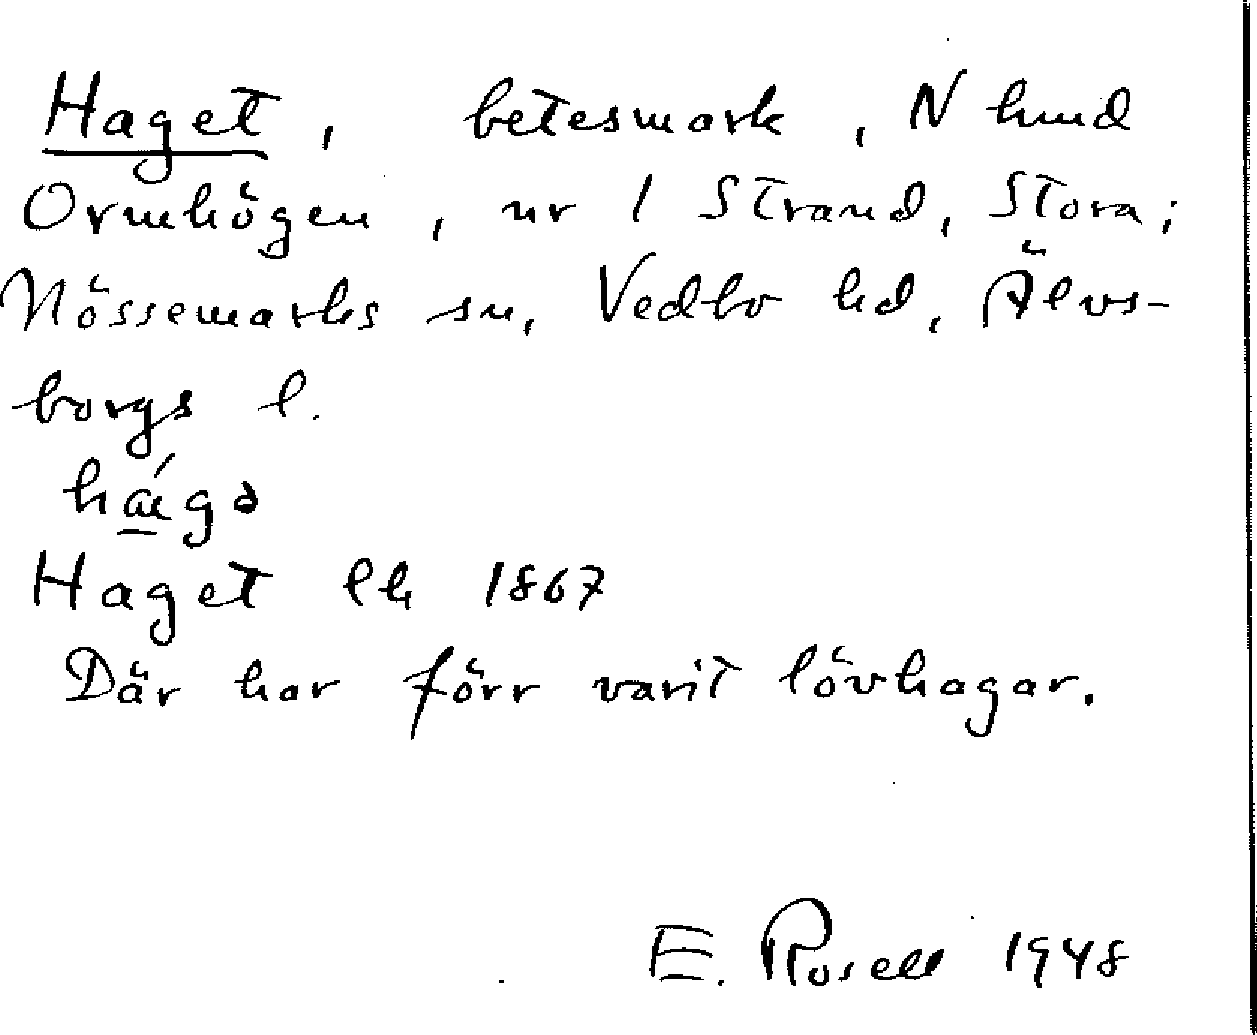 Haget, betesmark, N hmd
Ormhögen, nr 1 Strand, Stora;
Nössemarks sn, Vedbo hd, Älvs-
borgs l.
Haget lh 1867
Där har förr varit lövhagar.
E. Rosell 1948